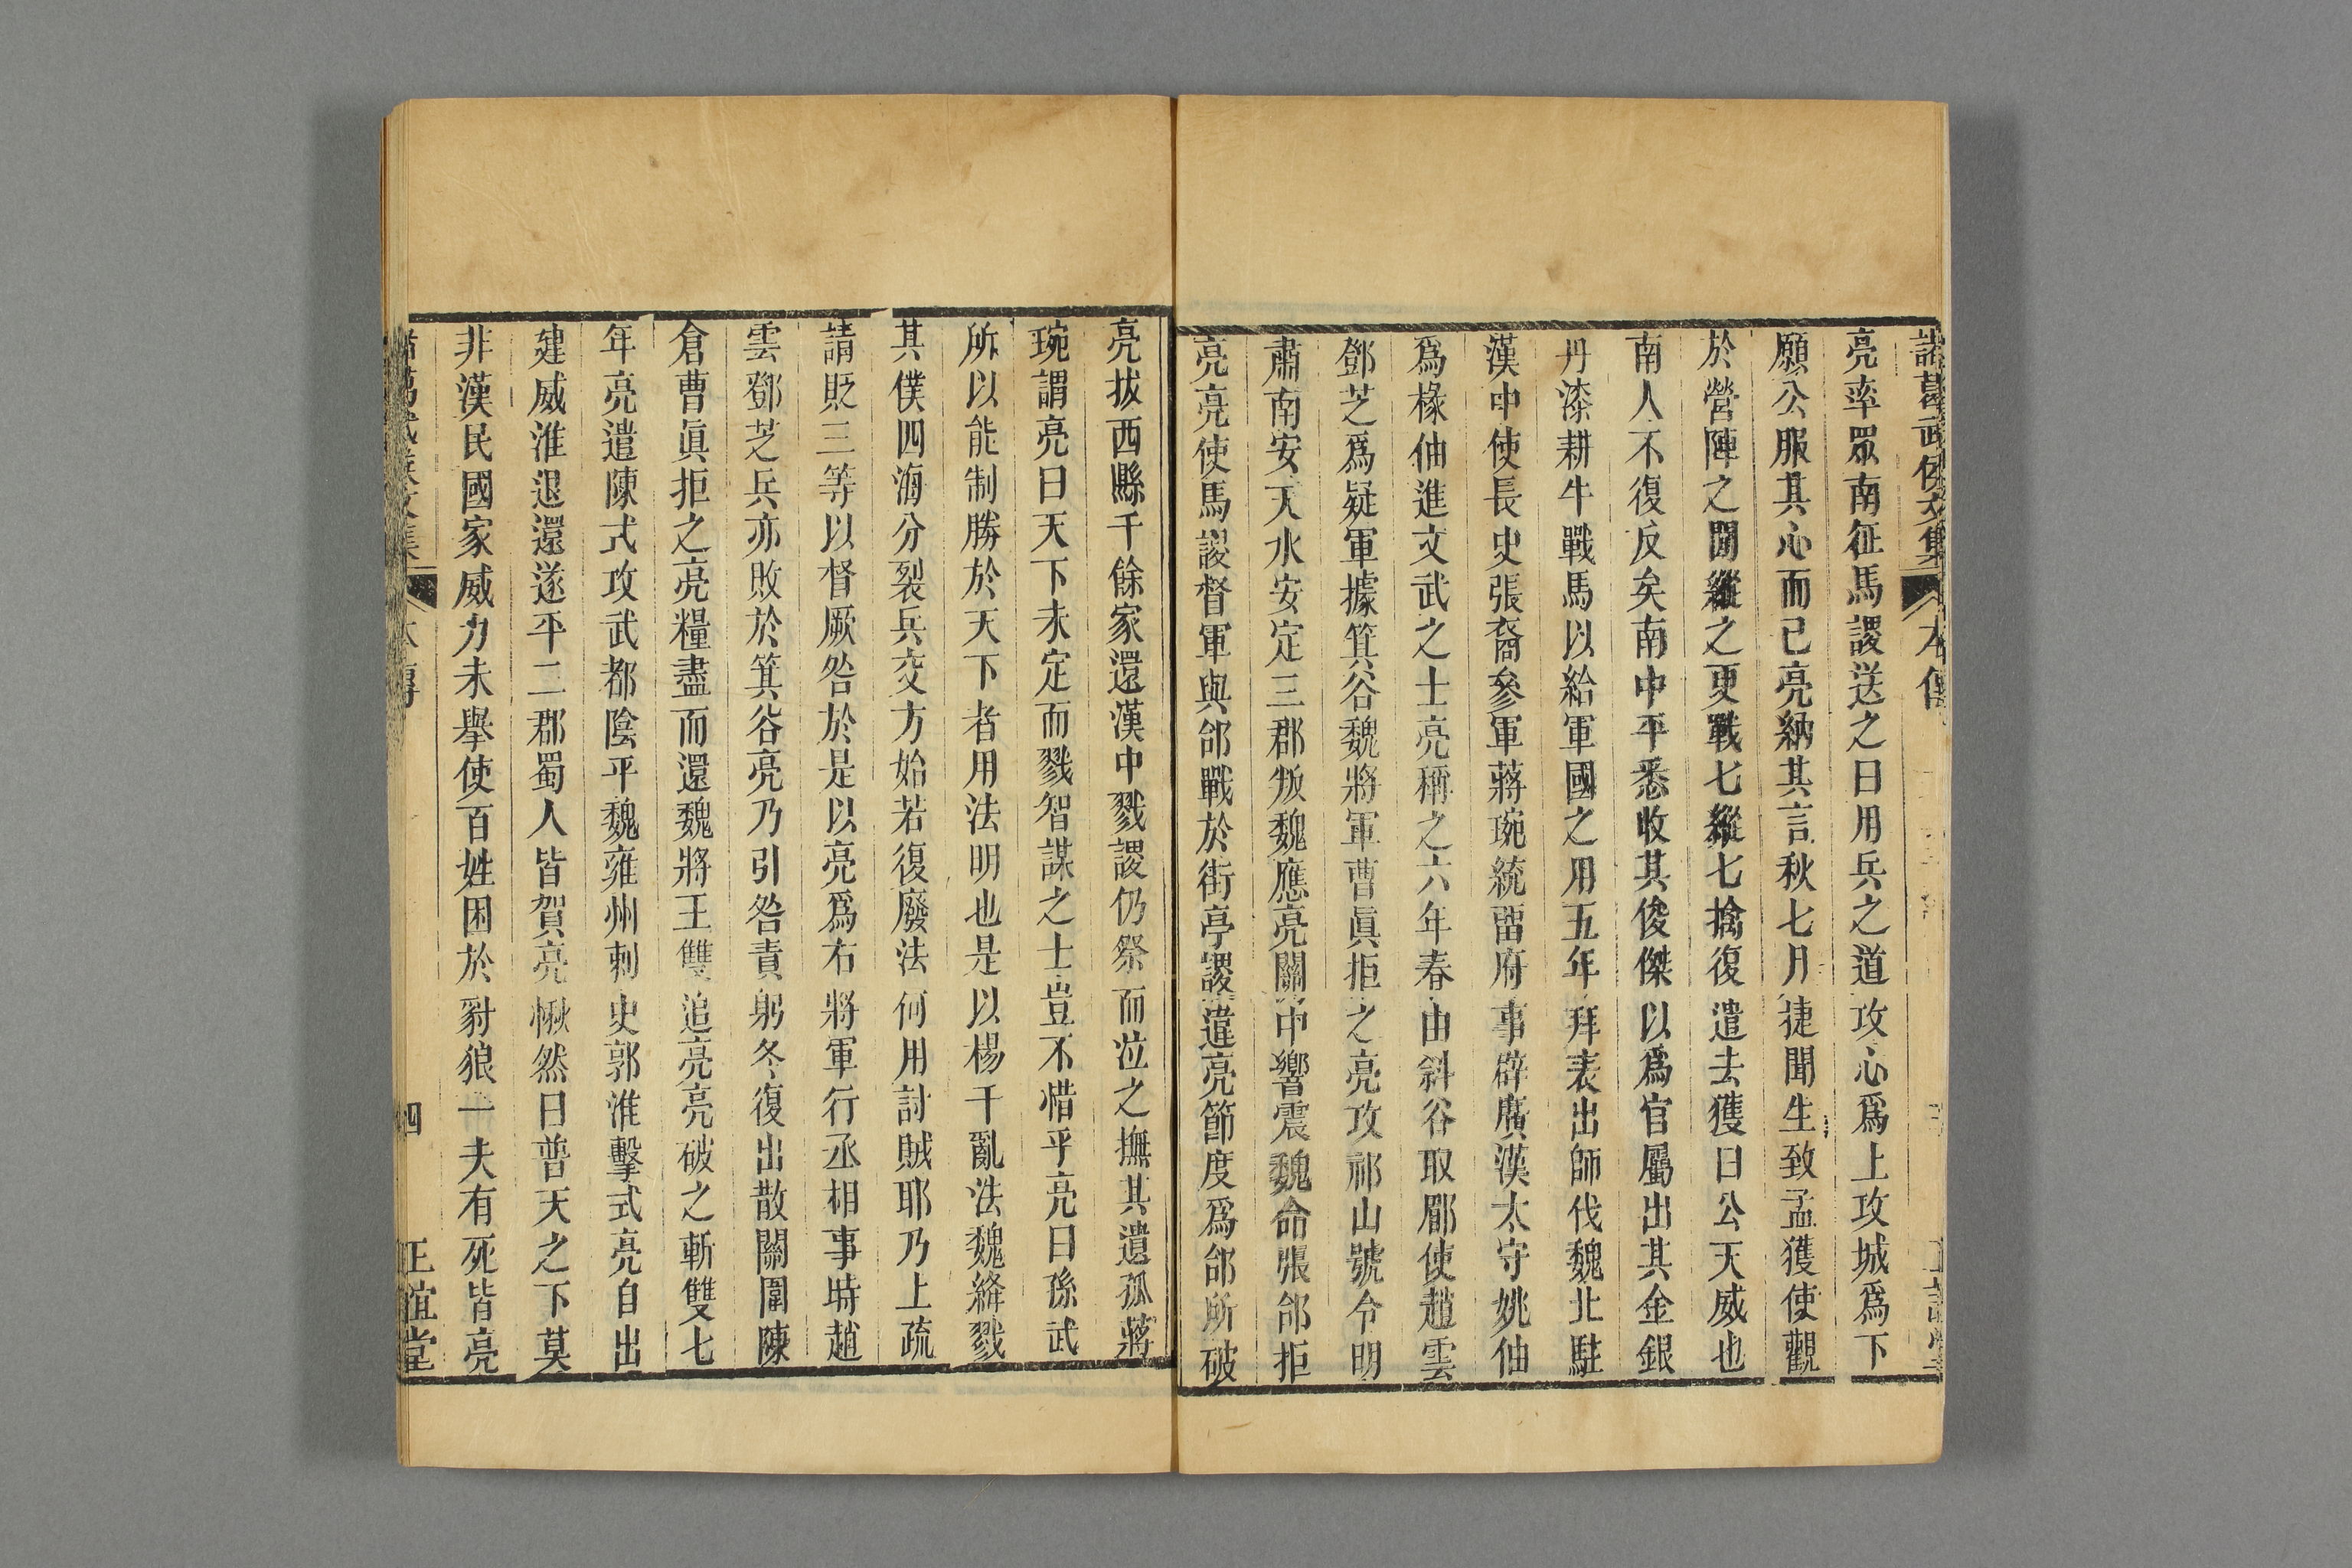 諸葛武侯文集 本傳
亮率眾南征馬謖送之曰用兵之道攻心爲上攻城爲下
願公服其心而已亮納其言秋七月捷聞生致孟獲使觀
於營陣之間縱之更戰七縱七擒復遣去獲曰公天威也
南人不復反矣南中平悉收其俊傑以爲官屬出其金銀
丹漆耕牛戰馬以給軍國之用五年拜表出師伐魏北駐
漢中使長史張裔參軍蔣琬統畱府事辟廣漢太守姚伷
爲椽伷進文武之士亮稱之六年春由斜谷取郿使趙雲
鄧芝爲疑軍據箕谷魏將軍曹眞拒之亮攻祁山號令明
肅南安天水安定三郡叛魏應亮關中響震魏命張郃拒
亮亮使馬謖督軍與郃戰於街亭謖違亮節度爲郃所破
亮拔西縣千餘家還漢中戮謖仍祭而泣之撫其遺孤蔣
琬謂亮曰天下未定而戮智謀之士豈不惜乎亮曰孫武
所以能制勝於天下者用法明也是以楊干亂法魏絳戮
其僕四海分裂兵交方始若復廢法何用討賊耶乃上疏
請貶三等以督厥咎於是以亮爲右將軍行丞相事時趙
雲鄧芝兵亦敗於箕谷亮乃引咎責躬冬復出散關圍陳
倉曹眞拒之亮糧盡而還魏將王雙追亮亮破之斬雙七
年亮遣陳式攻武都陰平魏雍州刺史郭淮擊式亮自出
建威淮退還遂平二郡蜀人皆賀亮愀然曰普天之下莫
非漢民國家威力未舉使百姓困於豺狼一夫有死皆亮
四 正誼堂